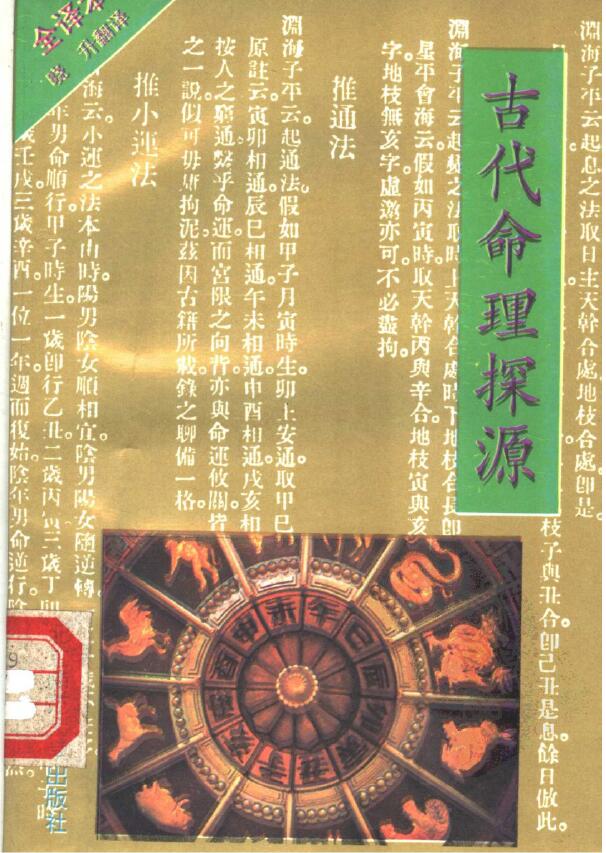 全译本
晓升翻译
古代命理探源
淵海子平云。起息之法取日主天幹合處地枝合處卽是
枝子與丑合卽己丑是息餘日倣此。
淵海子平云起變之法取時上天幹合處時下地枝合
星平會海云。假如丙寅時取天幹丙與辛合地枝寅與亥
字地枝無亥字虛邀亦可不必盡拘。
推通法
淵海子平云。起通法。假如甲子月寅時生卯上安通取甲巳
原註云寅卯相通辰巳相通午未相通申酉相通戌亥相
按人之窮通繫乎命運而宮限之向背亦與命運攸關。皆
之一說似可毋庸拘泥茲因古籍所載錄之聊備一格。
推小運法
海云。小運之法本由時。陽男陰女順相宜陰男陽女随逆轉。
年男命順行甲子時生一歲卽行乙丑二歲丙寅三歲丁卯
歲壬戌三歲辛酉一位一年週而復始。陰年男命逆行。
酉申未午巳辰
子丑
9
出版社